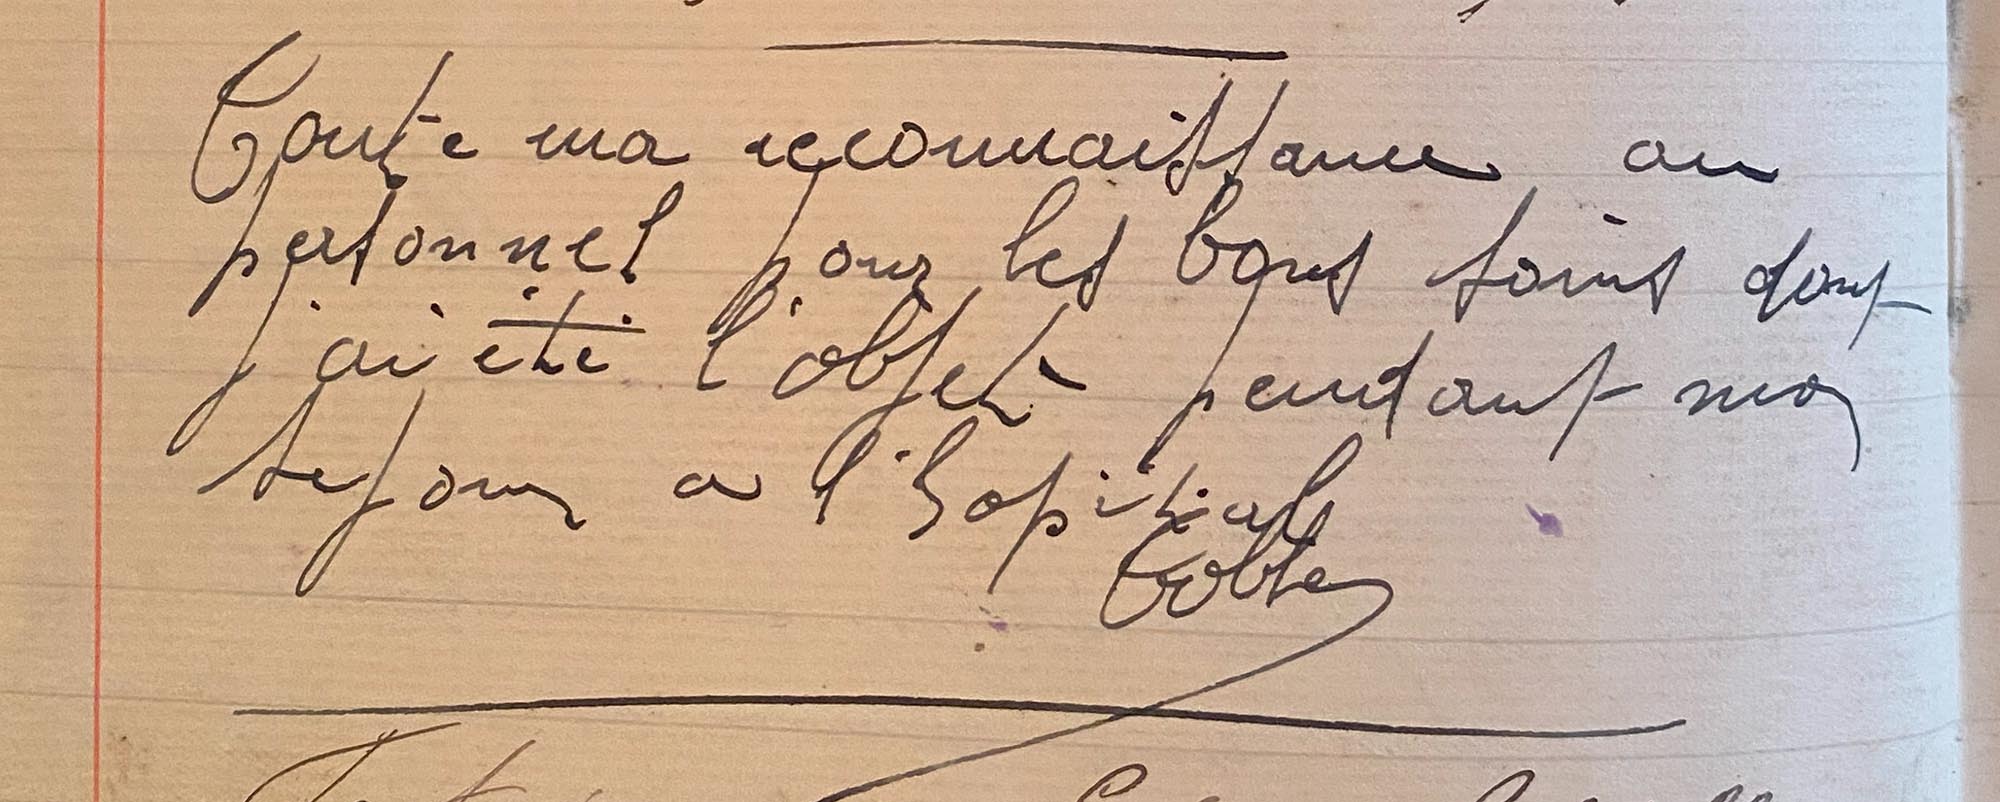 Toute ma reconnaissance au
personnel pour les bons soins dont
j'ai été l'objet pendant mon
sejour a l'hopital